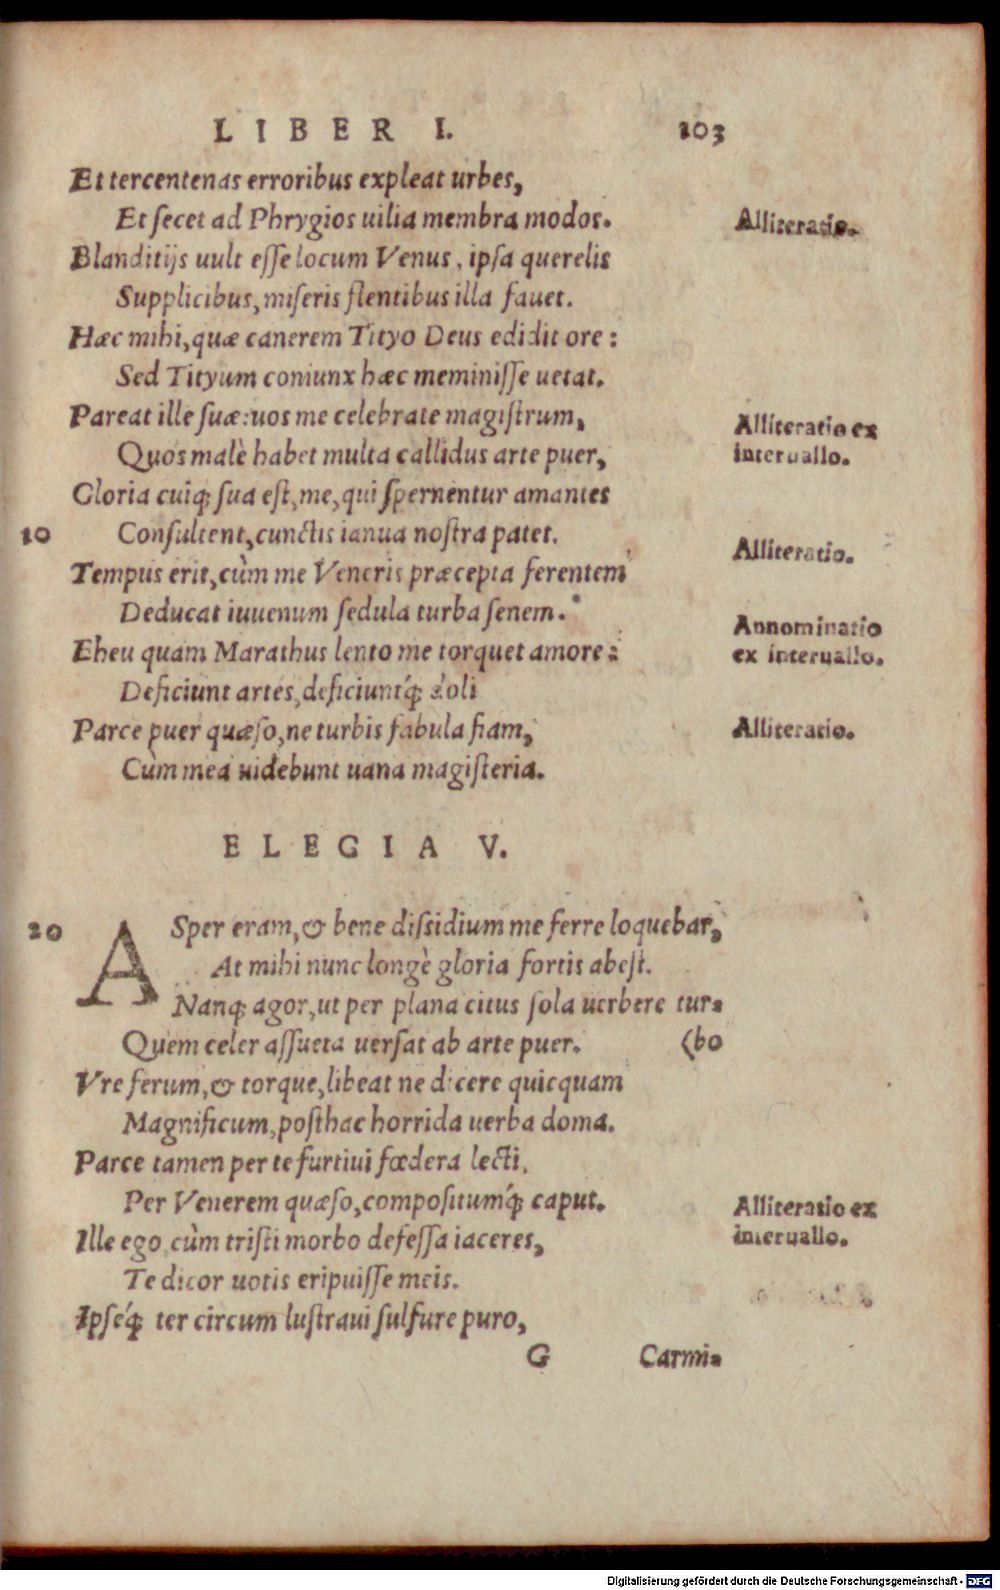 LIBER I. 103
Et tercentenas erroribus expleat urbes,
Et secet ad Phrygios uilia membra modos. Alliteratio.
Blanditijs uult esse locum Venus, ipsa querelis
Supplicibus, miseris flentibus illa fauet.
Hæc mihi, quæ canerem Tityo Deus edidit ore:
Sed Tityum coniunx hæc meminisse uetat.
Pareat ille suæ: uos me celebrate magistrum, Alliteratio ex
Quos malè habet multa callidus arte puer, interuallo.
Gloria cuiq; sua est, me, qui spernentur amantes
10 Consultent, cunctis ianua nostra patet.
Tempus erit, cùm me Veneris præcepta ferentem Alliteratio.
Deducat iuuenum sedula turba senem.
Eheu quam Marathus lento me torquet amore: Annominatio
ex interuallo.
Deficiunt artes, deficiuntq́; doli
Parce puer quæso, ne turbis fabula fiam, Alliteratio.
Cùm mea uidebunt uana magisteria.
ELEGIA V.
20 ASper eram, & bene dissidium me ferre loquebar,
At mihi nunc longè gloria fortis abest.
Nanq; agor, ut per plana citus sola uerbere tur-
Quem celer assueta uersat ab arte puer. (bo
Vre ferum, & torque, libeat ne dicere quicquam
Magnificum, posthac horrida uerba doma.
Parce tamen per te furtiui fœdera lecti,
Per Venerem quæso, compositumq́; caput. Alliteratio ex
Ille ego cùm tristi morbo defessa iaceres, interuallo.
Te dicor uotis eripuisse meis.
Ipseq́; ter circum lustraui sulfure puro,
G Carmi-
Digitalisierung gefördert durch die Deutsche Forschungsgemeinschaft - DFG